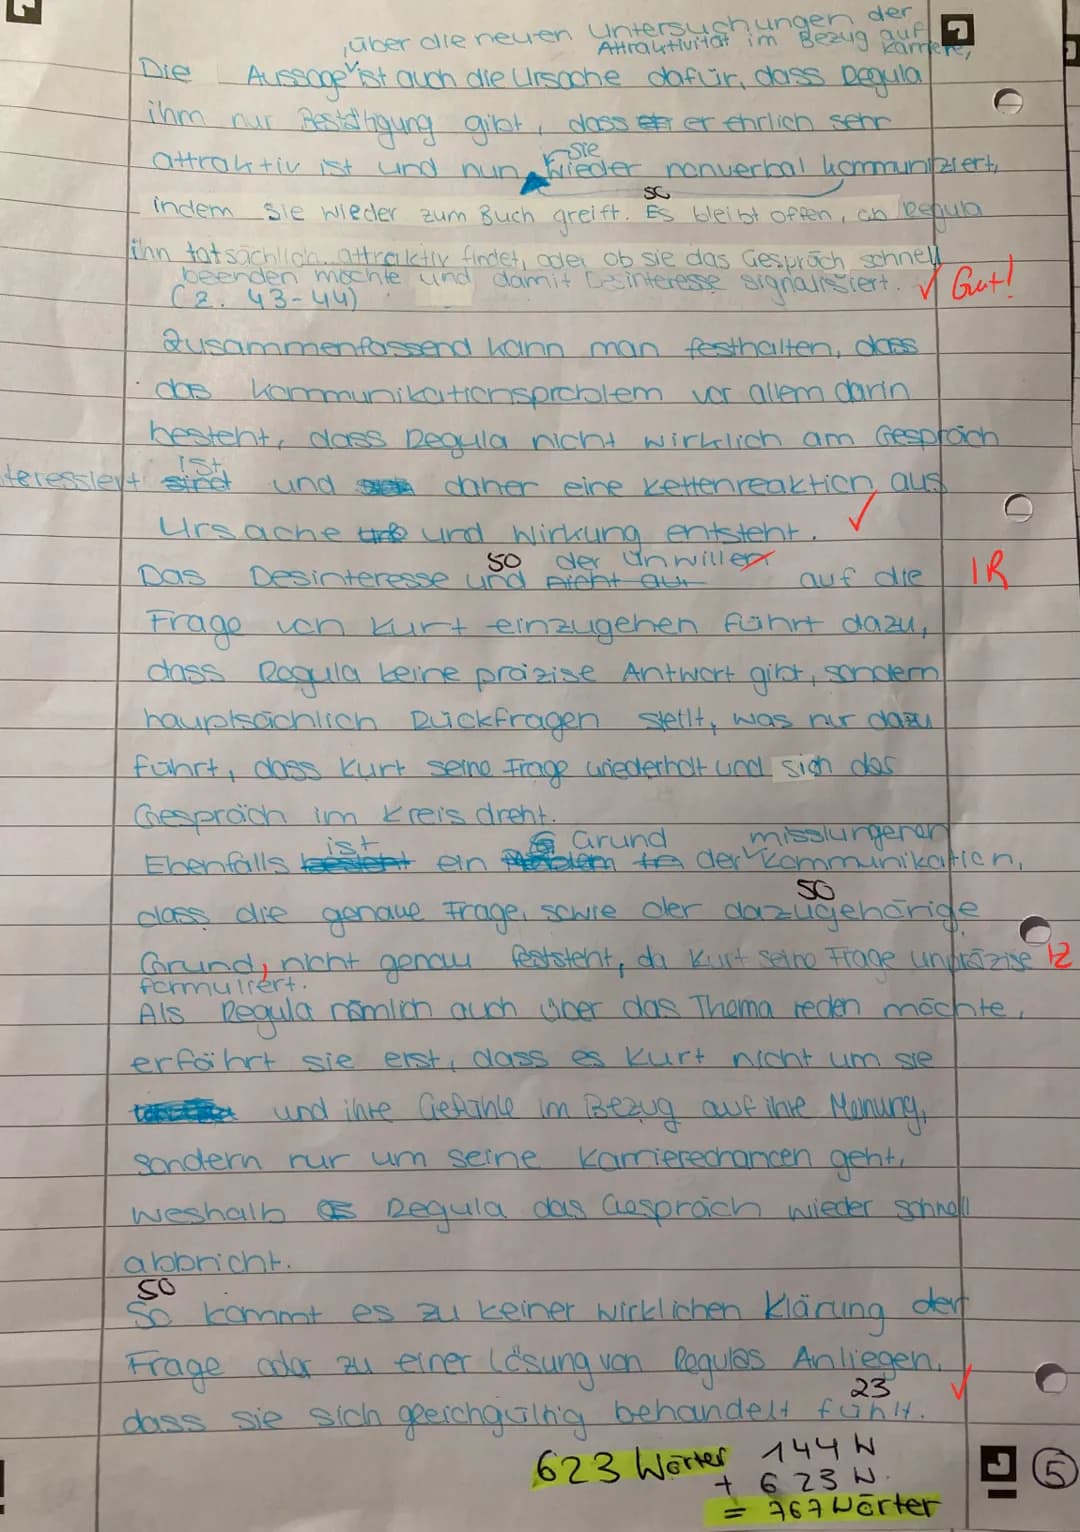 über die neuen Untersuchungen der
Attraktivität im Bezug auf Karriere,
Die Aussage ist auch die Ursache dafür, dass Regula
ihm nur Bestätigung gibt, dass er ehrlich sehr
attraktiv ist und nun wieder sie nonverbal kommuniziert,
50
indem sie wieder zum Buch greift. Es bleibt offen, ob Regula
ihn tatsächlich attraktiv findet, oder ob sie das Gespräch schnell
beenden möchte und damit Desinteresse signalisiert. ✓ Gut!
(Z. 43-44)
Zusammenfassend kann man festhalten, dass
das Kommunikationsproblem vor allem darin
besteht, dass Regula nicht wirklich am Gespräch
teressiert ist, und daher eine Kettenreaktion aus
Ursache und Wirkung entsteht. ✓
50
Das Desinteresse und der Unwillen auf die 1R
Frage von Kurt einzugehen führt dazu,
dass Regula keine präzise Antwort gibt, sondern
hauptsächlich Rückfragen stellt, was nur dazu
führt, dass Kurt seine Frage wiederholt und sich das
Gespräch im Kreis dreht.
Ebenfalls ist ein Grund der misslungenen Kommunikation,
50
dass die genaue Frage, sowie der dazugehörige
Grund, nicht genau feststeht, da Kurt seine Frage unpräzise 1Z
formuliert.
Als Regula nämlich auch über das Thema reden möchte,
erfährt sie erst, dass es Kurt nicht um sie
und ihre Gefühle im Bezug auf ihre Menung,
sondern nur um seine Karrierechancen geht,
weshalb Regula das Gespräch wieder schnell
abbricht.
50
So kommt es zu keiner wirklichen Klärung der
Frage oder zu einer Lösung von Regulas Anliegen,
23 ✓
dass sie sich gleichgültig behandelt fühlt.
623 Wörter 144 W
+ 623 W.
= 767 Wörter
5